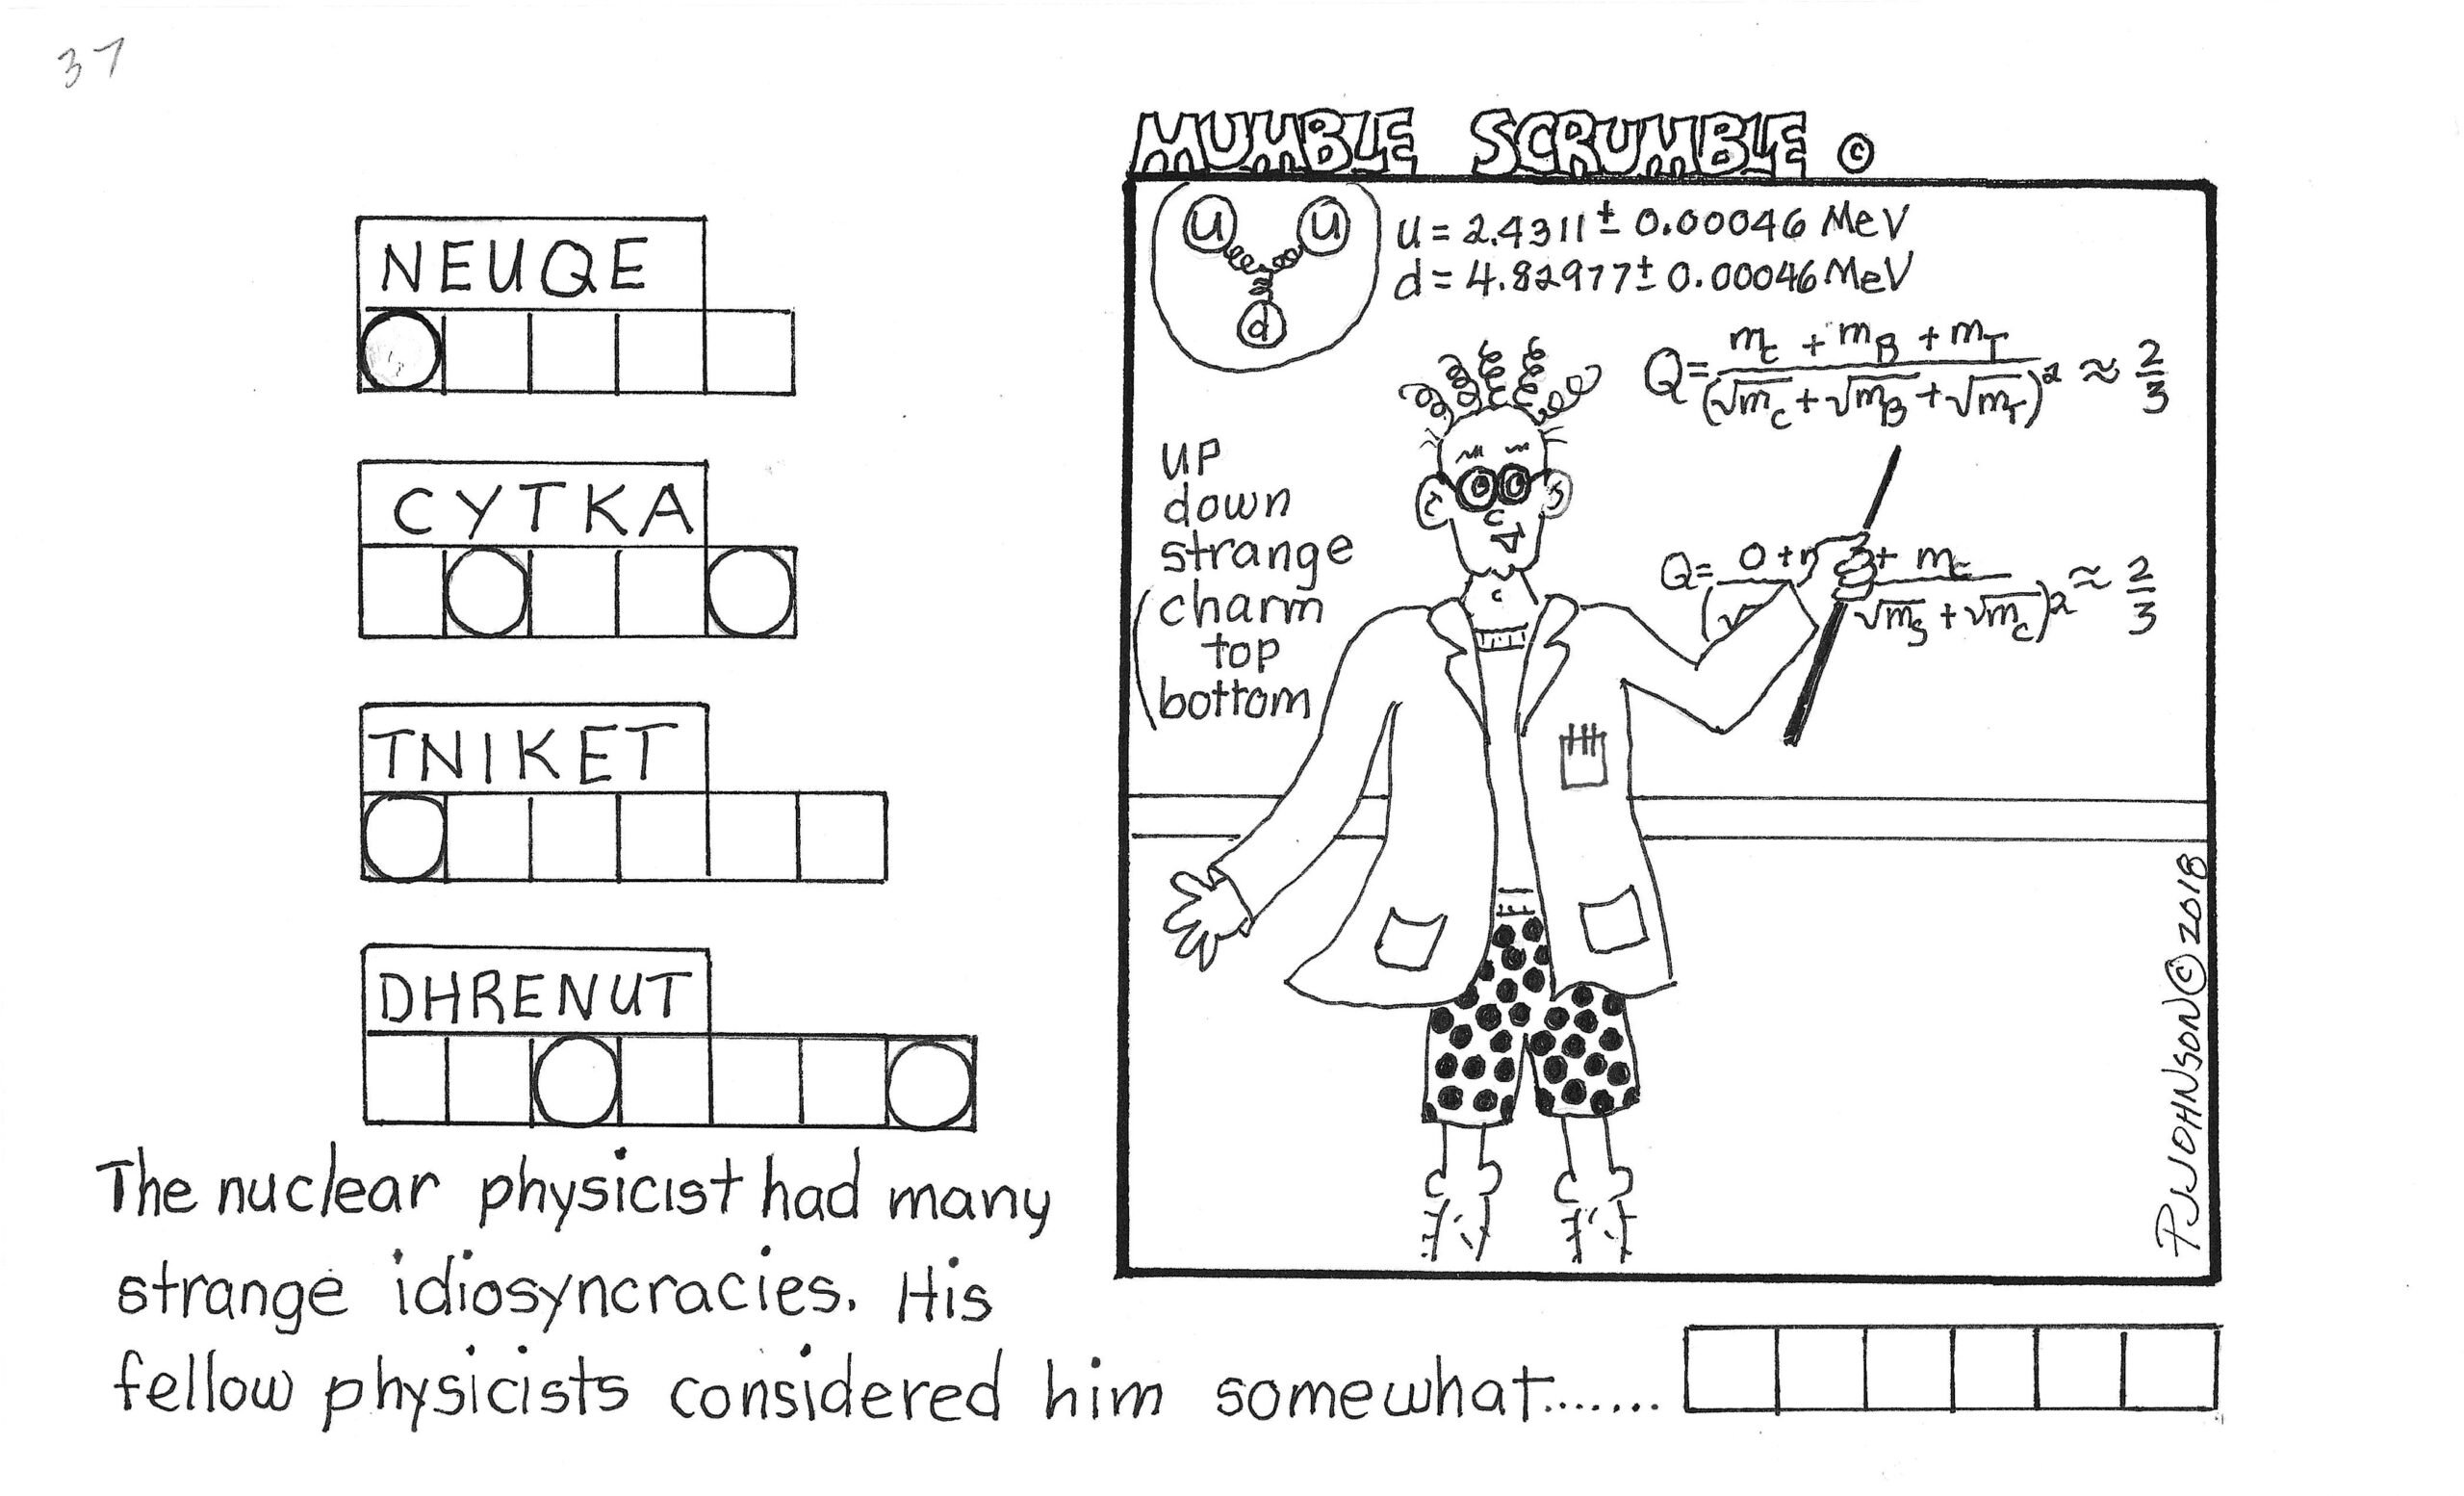 37
MUMBLE SCRUMBLE ©
NEUQE
CYTKA
TNIKET
DHRENUT
u u
d
u = 2.4311 ± 0.00046 MeV
d = 4.82977 ± 0.00046 MeV
Q = (m_c + m_B + m_T) / (√m_c + √m_B + √m_T)² ≈ 2/3
up
down
strange
charm
top
bottom
Q = 0 + + m_c / (√ √m_s + √m_c)² ≈ 2/3
PJJOHNSON © 2018
The nuclear physicist had many
strange idiosyncracies. His
fellow physicists considered him somewhat.......